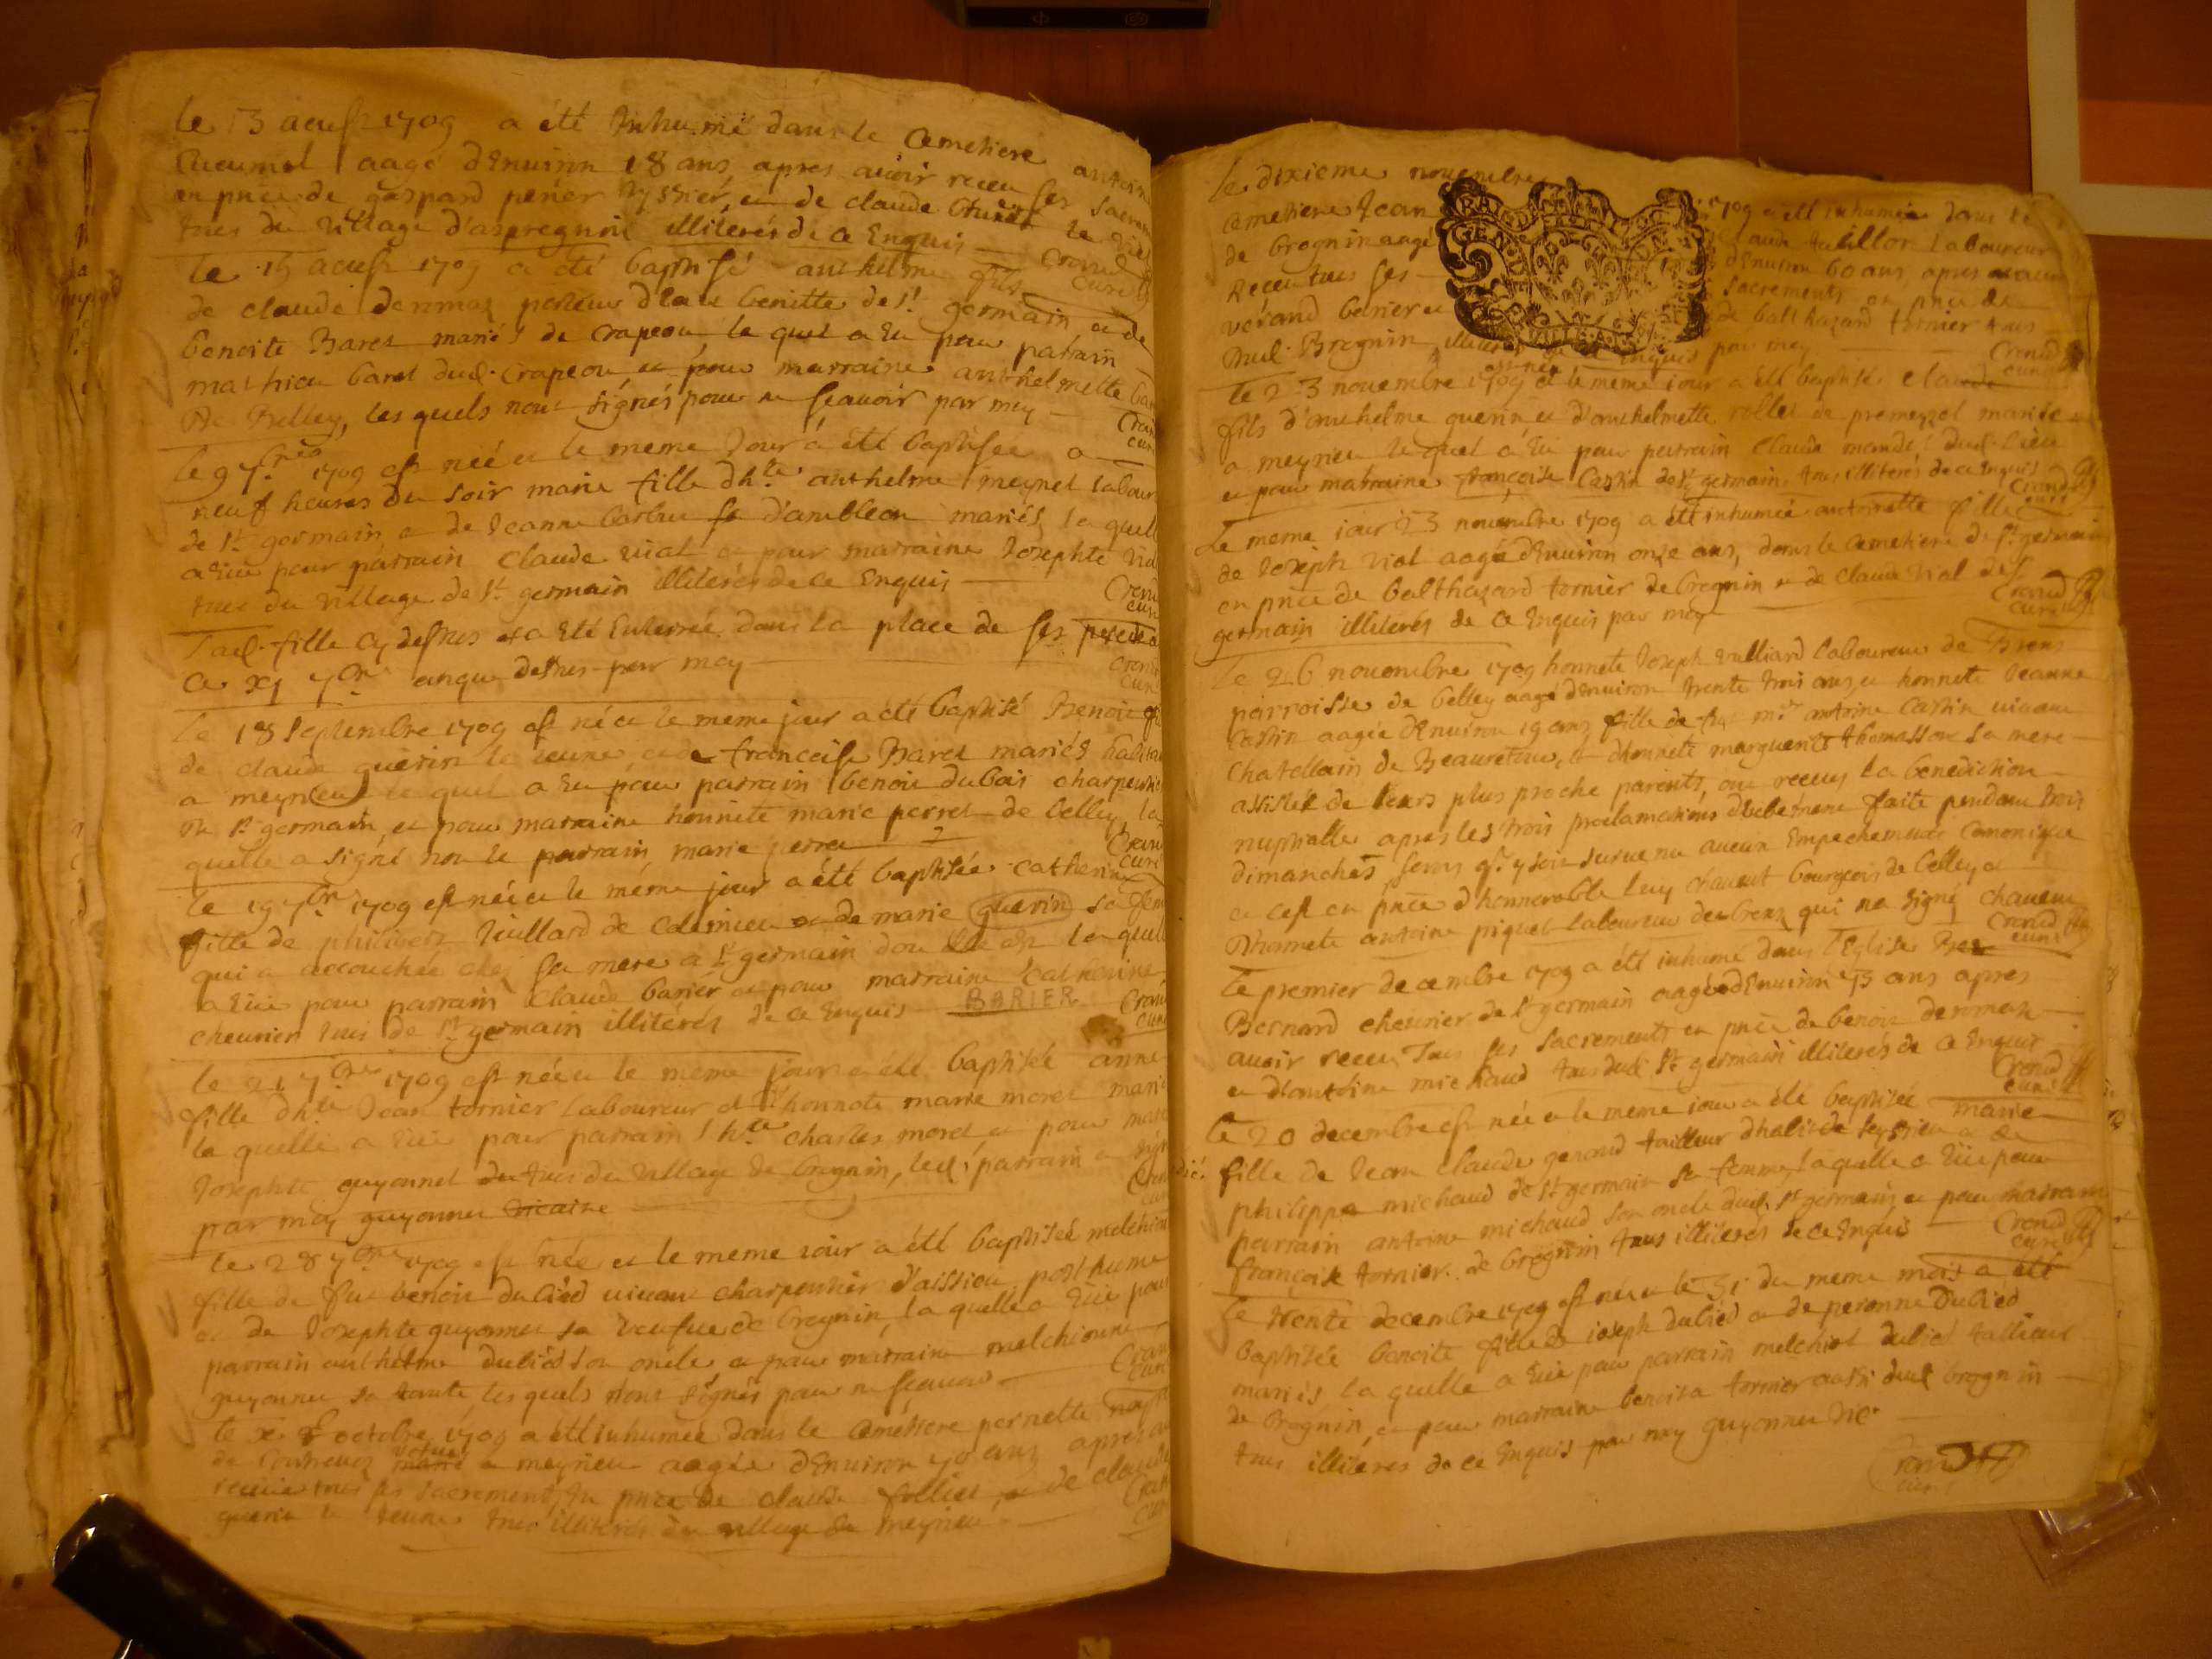 le 13 aoust 1709 a été Inhumé dans le Cemetiere antoine
aagé d'Enuiron 18 ans, apres auoir receu ses sacrem
en pnce de gaspard perier et de claude le
tous du village d'aspregnin illiterés de ce Enquis
Crond curé
le 15 aoust 1709 a été baptisé anthelme fils
de claude deromaz porteur d'eau benitte de st germain et de
benoite Baret mariés de Crapeou, le quel a Eu pour parrain
mathieu baret dud. Crapeou et pour marraine anthelmette bar
De Belley, les quels n'ont signés pour ne scauoir par moy
le 9 7bre 1709 est née et le meme Jour a été baptisée a
neuf heures du soir marie fille d'hte anthelme meynet labour
de st germain et de Jeanne d'ambleon mariés, la quell
a Eüe pour parrain claude vial et pour marraine Josephte via
tous du village de st germain illiterés de ce Enquis
Lad. fille cy dessus a Eté Enterrée dans la place de ses
ce xj 7bre anque dessus par moy
le 18 septembre 1709 est né et le meme jour a été baptisé Benoit
de claude guérin le jeune, et de francoise Baret mariés habitan
a meyrieu le quel a Eu pour parrain benoit dubois charpentie
De st germain, et pour marraine honnete marie perret de belley, la
quelle a signé non le parrain, marie perret
le 19 7bre 1709 est née et le même jour a été baptisée catherine
fille de philibert Juillard de et de marie guerin sa fem
qui a accouchée chez sa mere a st germain d'ou elle est la quell
a Eüe pour parrain claude barier et pour marraine catherine
cheurier tous de st germain illitérés de ce Enquis BARIER
le 21 7bre 1709 est née et le meme jour a été baptisée anne
fille d'hte Jean tornier laboureur et d'honnete marie moret marié
la quelle a Eüe pour parrain hte charles moret et pour marr
Josephte guyonnet tous du village de brognin, led. parrain a
par moy guyonnet vicaire
le 28 7bre 1709 est née et le meme iour a été baptisée melchion
fille de feu benoit dubied viuant charpentier d'aissieu, posthume
et de Josephte guyonnet sa veufue de brognin, la quelle a Eüe pour
parrain anthelme dubied son oncle, et pour marraine melchionne
guyonnet sa tante, les quels n'ont signés pour ne scauoir
le octobre 1709 a été inhumée dans le cemetiere pernette
de veufue a meyrieu aagée d'Enuiron 70 ans apres
receue tous ses sacrements en pnce de claude follies, et de claude
guerin le jeune tous illiterés du village de meyrieu
le dixieme nouembre 1709 a été inhumée dans le
Cemetiere Jean claude laboureur
de brognin aagé d'Enuiron 60 ans apres auoir
Receu tous ses sacrements en pnce de
vérand barier et de balthazard tornier tous
dud. Brognin illiterés de ce Enquis par moy
Crond curé
le 23 nouembre 1709 est né et le meme iour a été baptisé claude
fils d'anthelme guerin et d'anthelmette rollet de premeyzel mariés
a meyrieu le quel a Eu pour parrain claude dud. lieu
et pour marraine françoise Castin de st germain tous illiterés de ce Enquis
Crond curé
le meme iour 23 nouembre 1709 a été inhumée antoinette fille
de Joseph vial aagée d'Enuiron onze ans, dans le Cemetiere de st germain
en pnce de balthazard tornier de brognin et de claude vial de st
germain illiterés de ce Enquis par moy
Crond curé
le 26 nouembre 1709 honnete Joseph vulliard laboureur de Brens
parroisse de belley aagé d'enuiron trente trois ans, et honnete Jeanne
Castin aagée d'Enuiron 19 ans fille de feu mre antoine Castin viuant
Chatellain de Beauretour, et d'honnete marguerite thomasson sa mere
assistés de leurs plus proche parents, ont receus la benediction
nuptialle apres les trois proclamations faite pendant trois
dimanches sans q'y soit suruenu aucun Empechement Canonique
et cest en pnce d'honnorable luy chauent bourgeois de belley et
D'honnete antoine piquet laboureur de brens qui na signé, chauent
Crond curé
le premier decembre 1709 a été inhumé dans l'Eglise
Bernard cheurier de st germain aagé d'Enuiron 73 ans apres
auoir receu Tous ses sacrements en pnce de benoit deromaz
et d'antoine michaud tous dud. st germain illiterés de ce Enquis
Crond curé
le 20 decembre est née et le meme iour a été baptisée marie
fille de Jean claude genond tailleur d'habit de seyssieu et de
philippa michaud de st germain sa femme, laquelle a Eüe pour
parrain antoine michaud son oncle dud. st germain, et pour marraine
françoise tornier de brognin tous illiterés de ce Enquis
Crond curé
le trente decembre 1709 est née et le 31 du meme mois a été
baptisée benoite fille de ioseph dubied et de peronne Dubied
mariés la quelle a Eüe pour parrain melchiot dubied tallieur
de brognin, et pour marraine benoita tornier aussi dud. brognin
tous illiterés de ce Enquis par moy guyonnet vic.
Crond curé